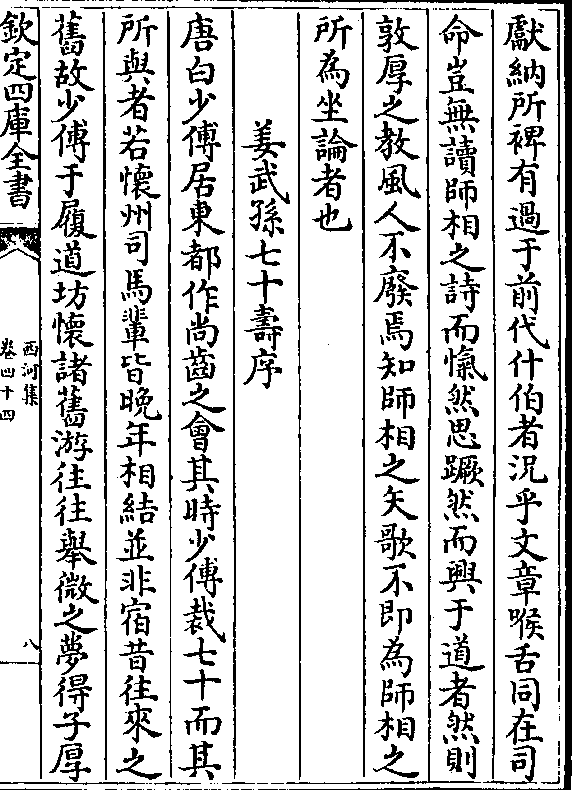 獻納所裨有過于前代什伯者況乎文章喉舌同在司
命豈無讀師相之詩而愾然思蹶然而興于道者然則
敦厚之教風人不廢焉知師相之矢歌不即為師相之
所為坐論者也
姜武孫七十壽序
唐白少傅居東都作尚齒之會其時少傅裁七十而其
所與者若懷州司馬輩皆晚年相結並非宿昔往來之
舊故少傅于履道坊懷諸舊游往往舉微之夢得子厚
欽定四庫全書
西河集
卷四十四
八